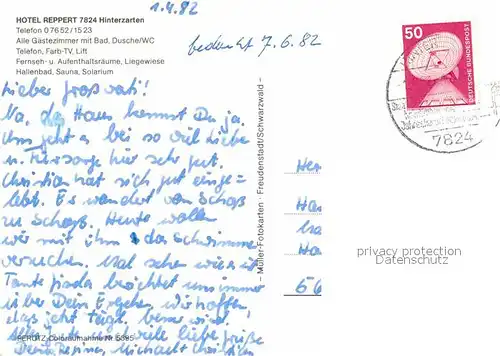 1.4.82
HOTEL REPPERT 7824 Hinterzarten
Telefon 07652/1523
Alle Gästezimmer mit Bad, Dusche/WC
Telefon, Farb-TV, Lift
Fernseh- u. Aufenthaltsräume, Liegewiese
Hallenbad, Sauna, Solarium
bedankt 7.6.82
50
DEUTSCHE BUNDESPOST
7824
Lieber Großvati!
Na, das Haus kennst Du ja.
Uns geht es bei so viel Liebe
u. Fürsorge hier sehr gut.
Christian hat sich gut einge-
lebt. Er wandert von Schoß
zu Schoß. Heute wollen
wir mit ihm das Schwimmen
versuchen. Mal sehen wie es ist
Tante berichtet uns immer
über Dein Ergehen, wir hoffen,
daß jetzt besser wird.
viele liebe Grüße
Michael Christian
PERUTZ-Coloraufnahme Nr. 5395
Müller-Fotokarten · Freudenstadt/Schwarzwald
privacy protection
DATENSCHUTZ